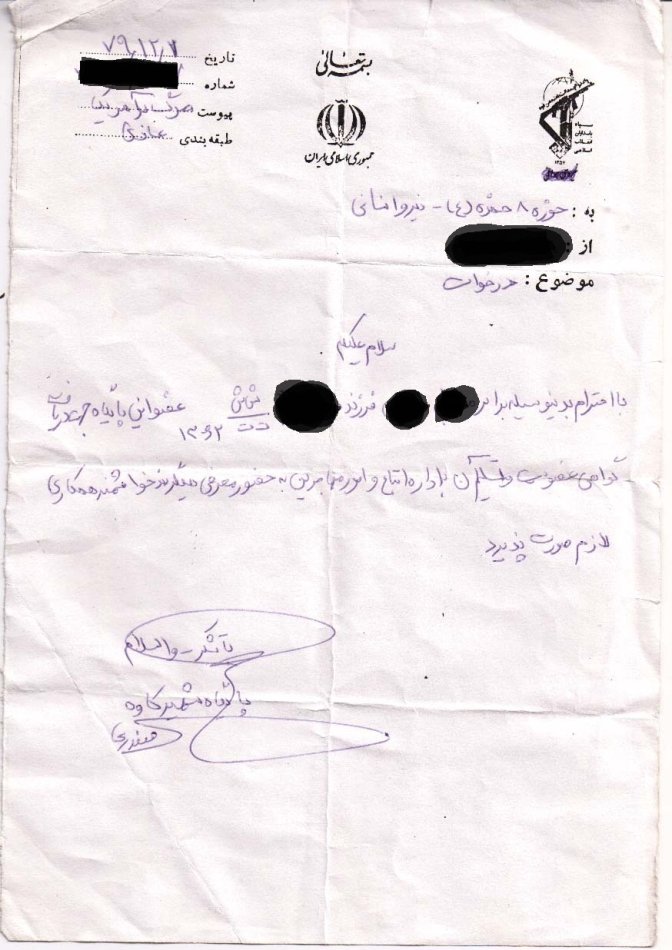 بسمه تعالی
تاریخ ۷۹،۱۲،۷
شماره
پیوست مرگ بر آمریکا
طبقه‌بندی عادی
جمهوری اسلامی ایران
سپاه
پاسداران
انقلاب
اسلامی
به : حوزه ۸ حمزه (ع) - نیروانسانی
از :
موضوع : درخواست
سلام علیکم
با احترام بدینوسیله برادر فرزند ش ش ت ت ۱۳۶۲ عضو این پایگاه جهت دریافت
گواهی عضویت و تسلیم آن به اداره اتباع و امور مهاجرین به حضور معرفی میگردد خواهشمند همکاری
لازم صورت پذیرد
با تشکر - والسلام
پایگاه شهید کاوه